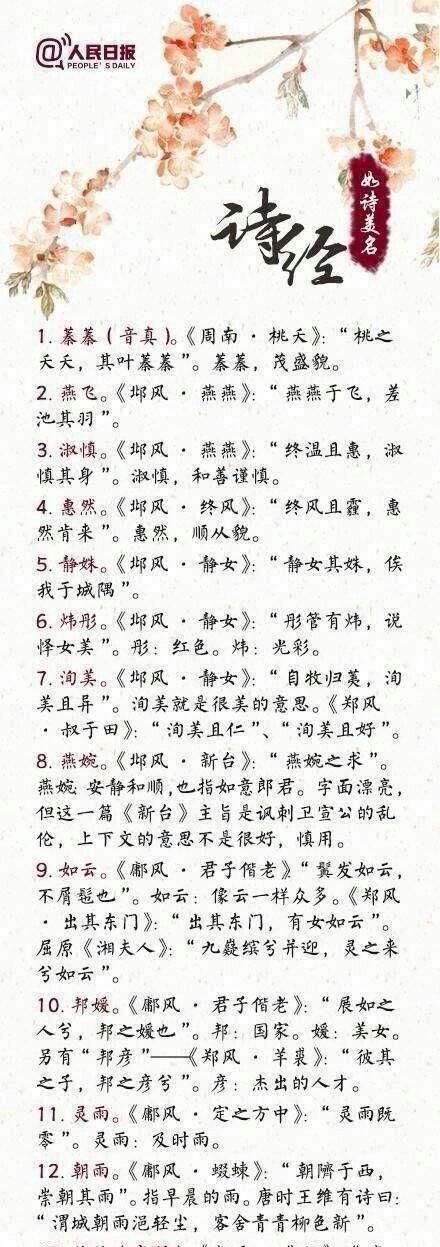 @人民日报
PEOPLE'S DAILY
诗经
如诗美名
1. 蓁蓁（音真）。《周南·桃夭》：“桃之
夭夭，其叶蓁蓁”。蓁蓁，茂盛貌。
2. 燕飞。《邶风·燕燕》：“燕燕于飞，差
池其羽”。
3. 淑慎。《邶风·燕燕》：“终温且惠，淑
慎其身”。淑慎，和善谨慎。
4. 惠然。《邶风·终风》：“终风且霾，惠
然肯来”。惠然，顺从貌。
5. 静姝。《邶风·静女》：“静女其姝，俟
我于城隅”。
6. 炜彤。《邶风·静女》：“彤管有炜，说
怿女美”。彤：红色。炜：光彩。
7. 洵美。《邶风·静女》：“自牧归荑，洵
美且异”。洵美就是很美的意思。《郑风
·叔于田》：“洵美且仁”、“洵美且好”。
8. 燕婉。《邶风·新台》：“燕婉之求”。
燕婉 安静和顺,也指如意郎君。字面漂亮，
但这一篇《新台》主旨是讽刺卫宣公的乱
伦，上下文的意思不是很好，慎用。
9. 如云。《鄘风·君子偕老》“鬒发如云，
不屑髢也”。如云：像云一样众多。《郑风
·出其东门》：“出其东门，有女如云”。
屈原《湘夫人》：“九嶷缤兮并迎，灵之来
兮如云”。
10. 邦媛。《鄘风·君子偕老》：“展如之
人兮，邦之媛也”。邦：国家。媛：美女。
另有“邦彦”——《郑风·羊裘》：“彼其
之子，邦之彦兮”。彦：杰出的人才。
11. 灵雨。《鄘风·定之方中》：“灵雨既
零”。灵雨：及时雨。
12. 朝雨。《鄘风·蝃蝀》：“朝隮于西，
崇朝其雨”。指早晨的雨。唐时王维有诗曰：
“渭城朝雨浥轻尘，客舍青青柳色新”。